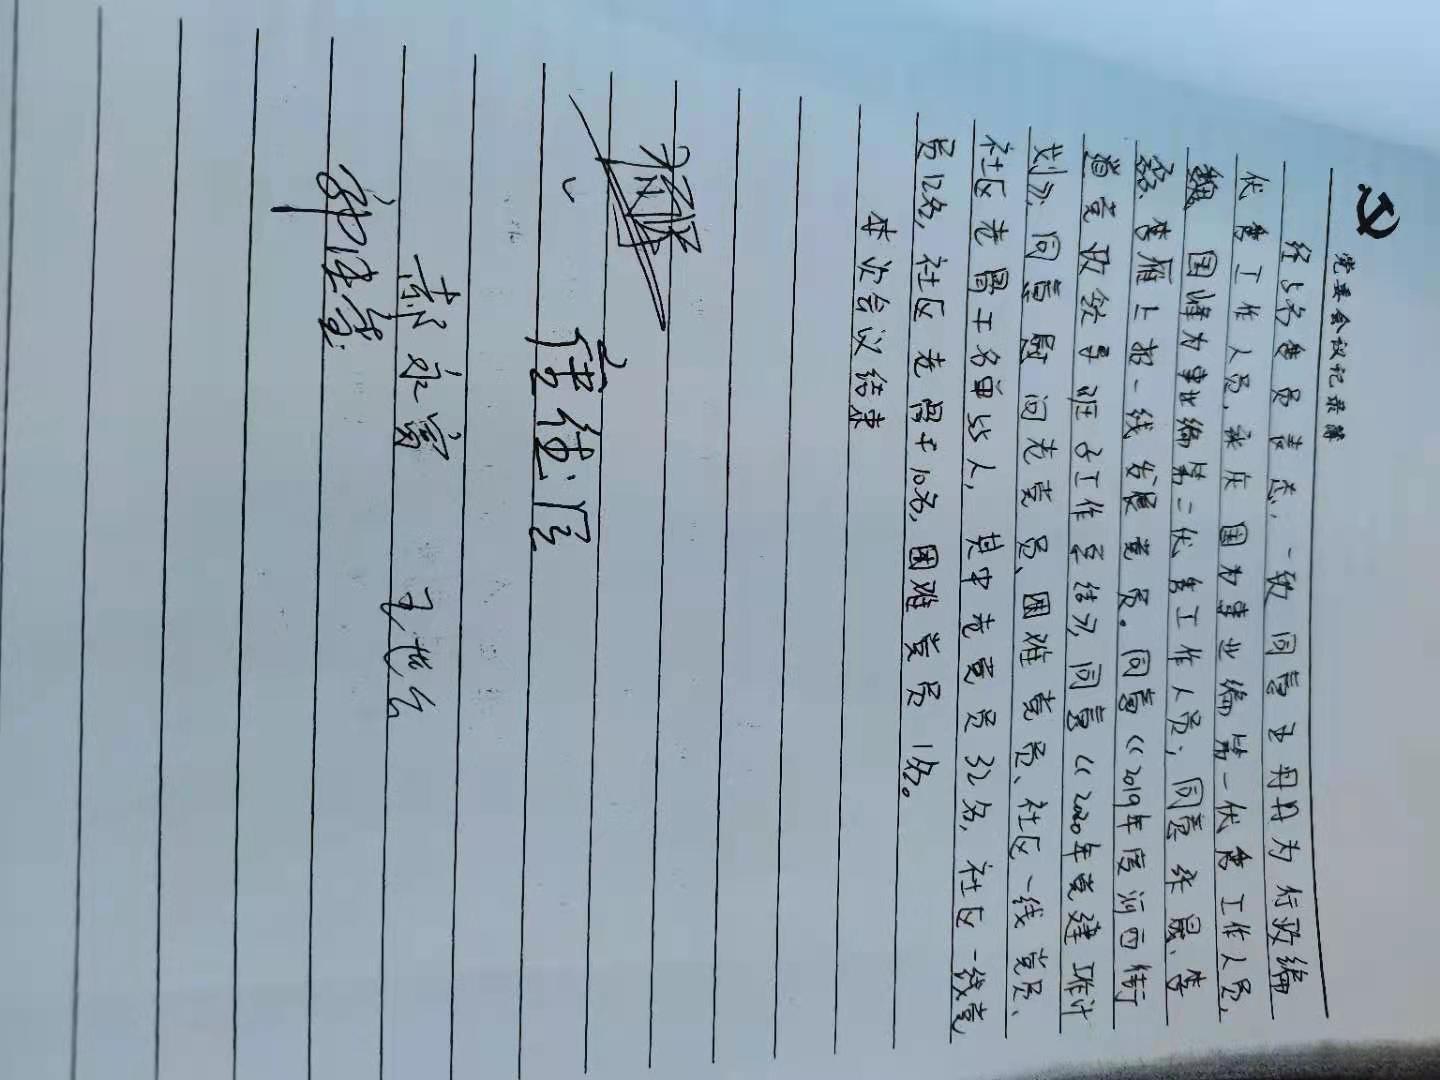 党委会议记录簿
经5名委员表态,一致同意王丹丹为行政编
优秀工作人员,张庆国为事业编第一优秀工作人员,
魏国峰为事业编第二优秀工作人员;同意张晟、李
磊、李雁上报一线发展党员。同意《2019年度河西街
道党政领导班子工作总结》,同意《2020年党建工作计
划》,同意慰问老党员、困难党员、社区一线党员、
社区老骨干名单55人,其中老党员32名,社区一线党
员12名,社区老骨干10名,困难党员1名。
本次会议结束